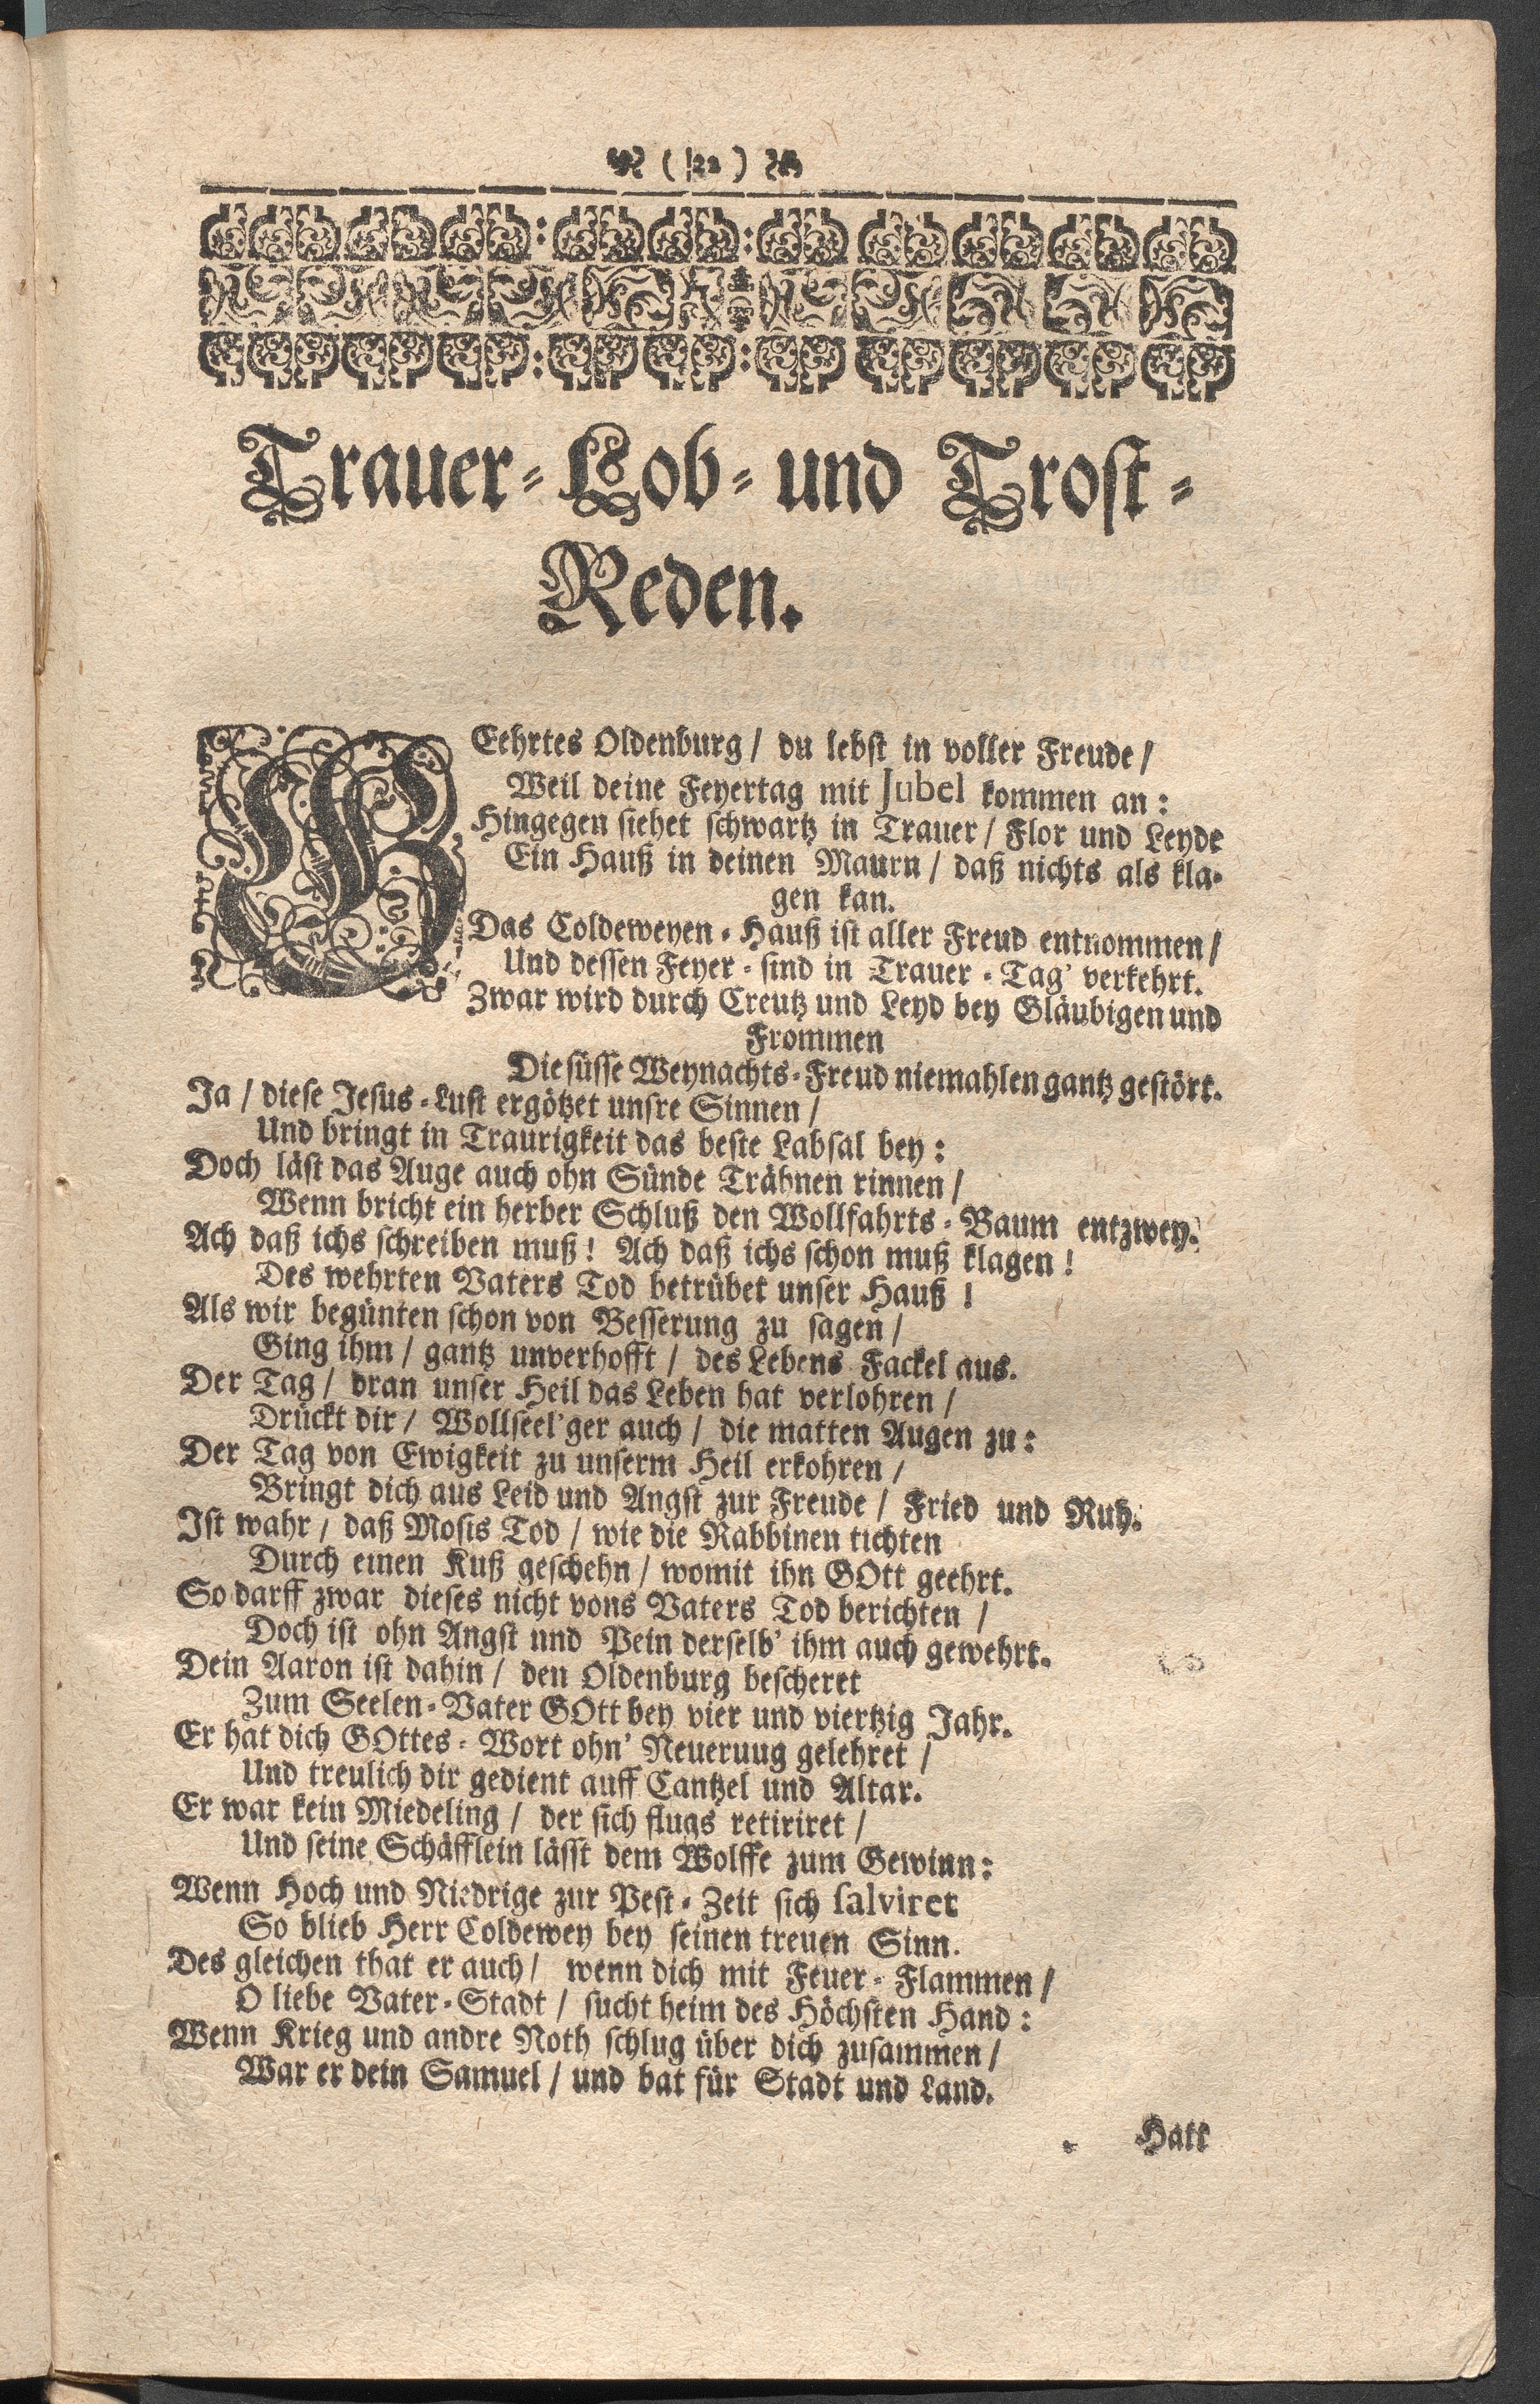 ( 22 )
Trauer-Lob-und Trost-
Reden.
GEehrtes Oldenburg / du lebst in voller Freude /
Weil deine Feyertag mit Jubel kommen an:
Hingegen siehet schwartz in Trauer / Flor und Leyde
Ein Hauß in deinen Maurn / daß nichts als kla-
gen kan.
Das Coldeweyen-Hauß ist aller Freud entnommen /
Und dessen Feyer-sind in Trauer-Tag' verkehrt.
Zwar wird durch Creutz und Leyd bey Gläubigen und
Frommen
Die süsse Weynachts-Freud niemahlen gantz gestört.
Ja / diese Jesus-Lust ergötzet unsre Sinnen /
Und bringt in Traurigkeit das beste Labsal bey:
Doch läst das Auge auch ohn Sünde Trähnen rinnen /
Wenn bricht ein herber Schluß den Wollfahrts-Baum entzwey.
Ach daß ichs schreiben muß! Ach daß ichs schon muß klagen!
Des wehrten Vaters Tod betrübet unser Hauß!
Als wir begünten schon von Besserung zu sagen /
Ging ihm / gantz unverhofft / des Lebens Fackel aus.
Der Tag / dran unser Heil das Leben hat verlohren /
Drückt dir / Wollseel'ger auch / die matten Augen zu:
Der Tag von Ewigkeit zu unserm Heil erkohren /
Bringt dich aus Leid und Angst zur Freude / Fried und Ruh.
Ist wahr / daß Mosis Tod / wie die Rabbinen tichten
Durch einen Kuß geschehn / womit ihn GOtt geehrt.
So darff zwar dieses nicht vons Vaters Tod berichten /
Doch ist ohn Angst und Pein derselb' ihm auch gewehrt.
Dein Aaron ist dahin / den Oldenburg bescheret
Zum Seelen-Vater GOtt bey vier und viertzig Jahr.
Er hat dich GOttes-Wort ohn' Neueruug gelehret /
Und treulich dir gedient auff Cantzel und Altar.
Er war kein Miedeling / der sich flugs retiriret /
Und seine Schäfflein lässt dem Wolffe zum Gewinn:
Wenn Hoch und Niedrige zur Pest-Zeit sich salviret
So blieb Herr Coldewey bey seinen treuen Sinn.
Des gleichen that er auch / wenn dich mit Feuer-Flammen /
O liebe Vater-Stadt / sucht heim des Höchsten Hand:
Wenn Krieg und andre Noth schlug über dich zusammen /
War er dein Samuel / und bat für Stadt und Land.
Hatt